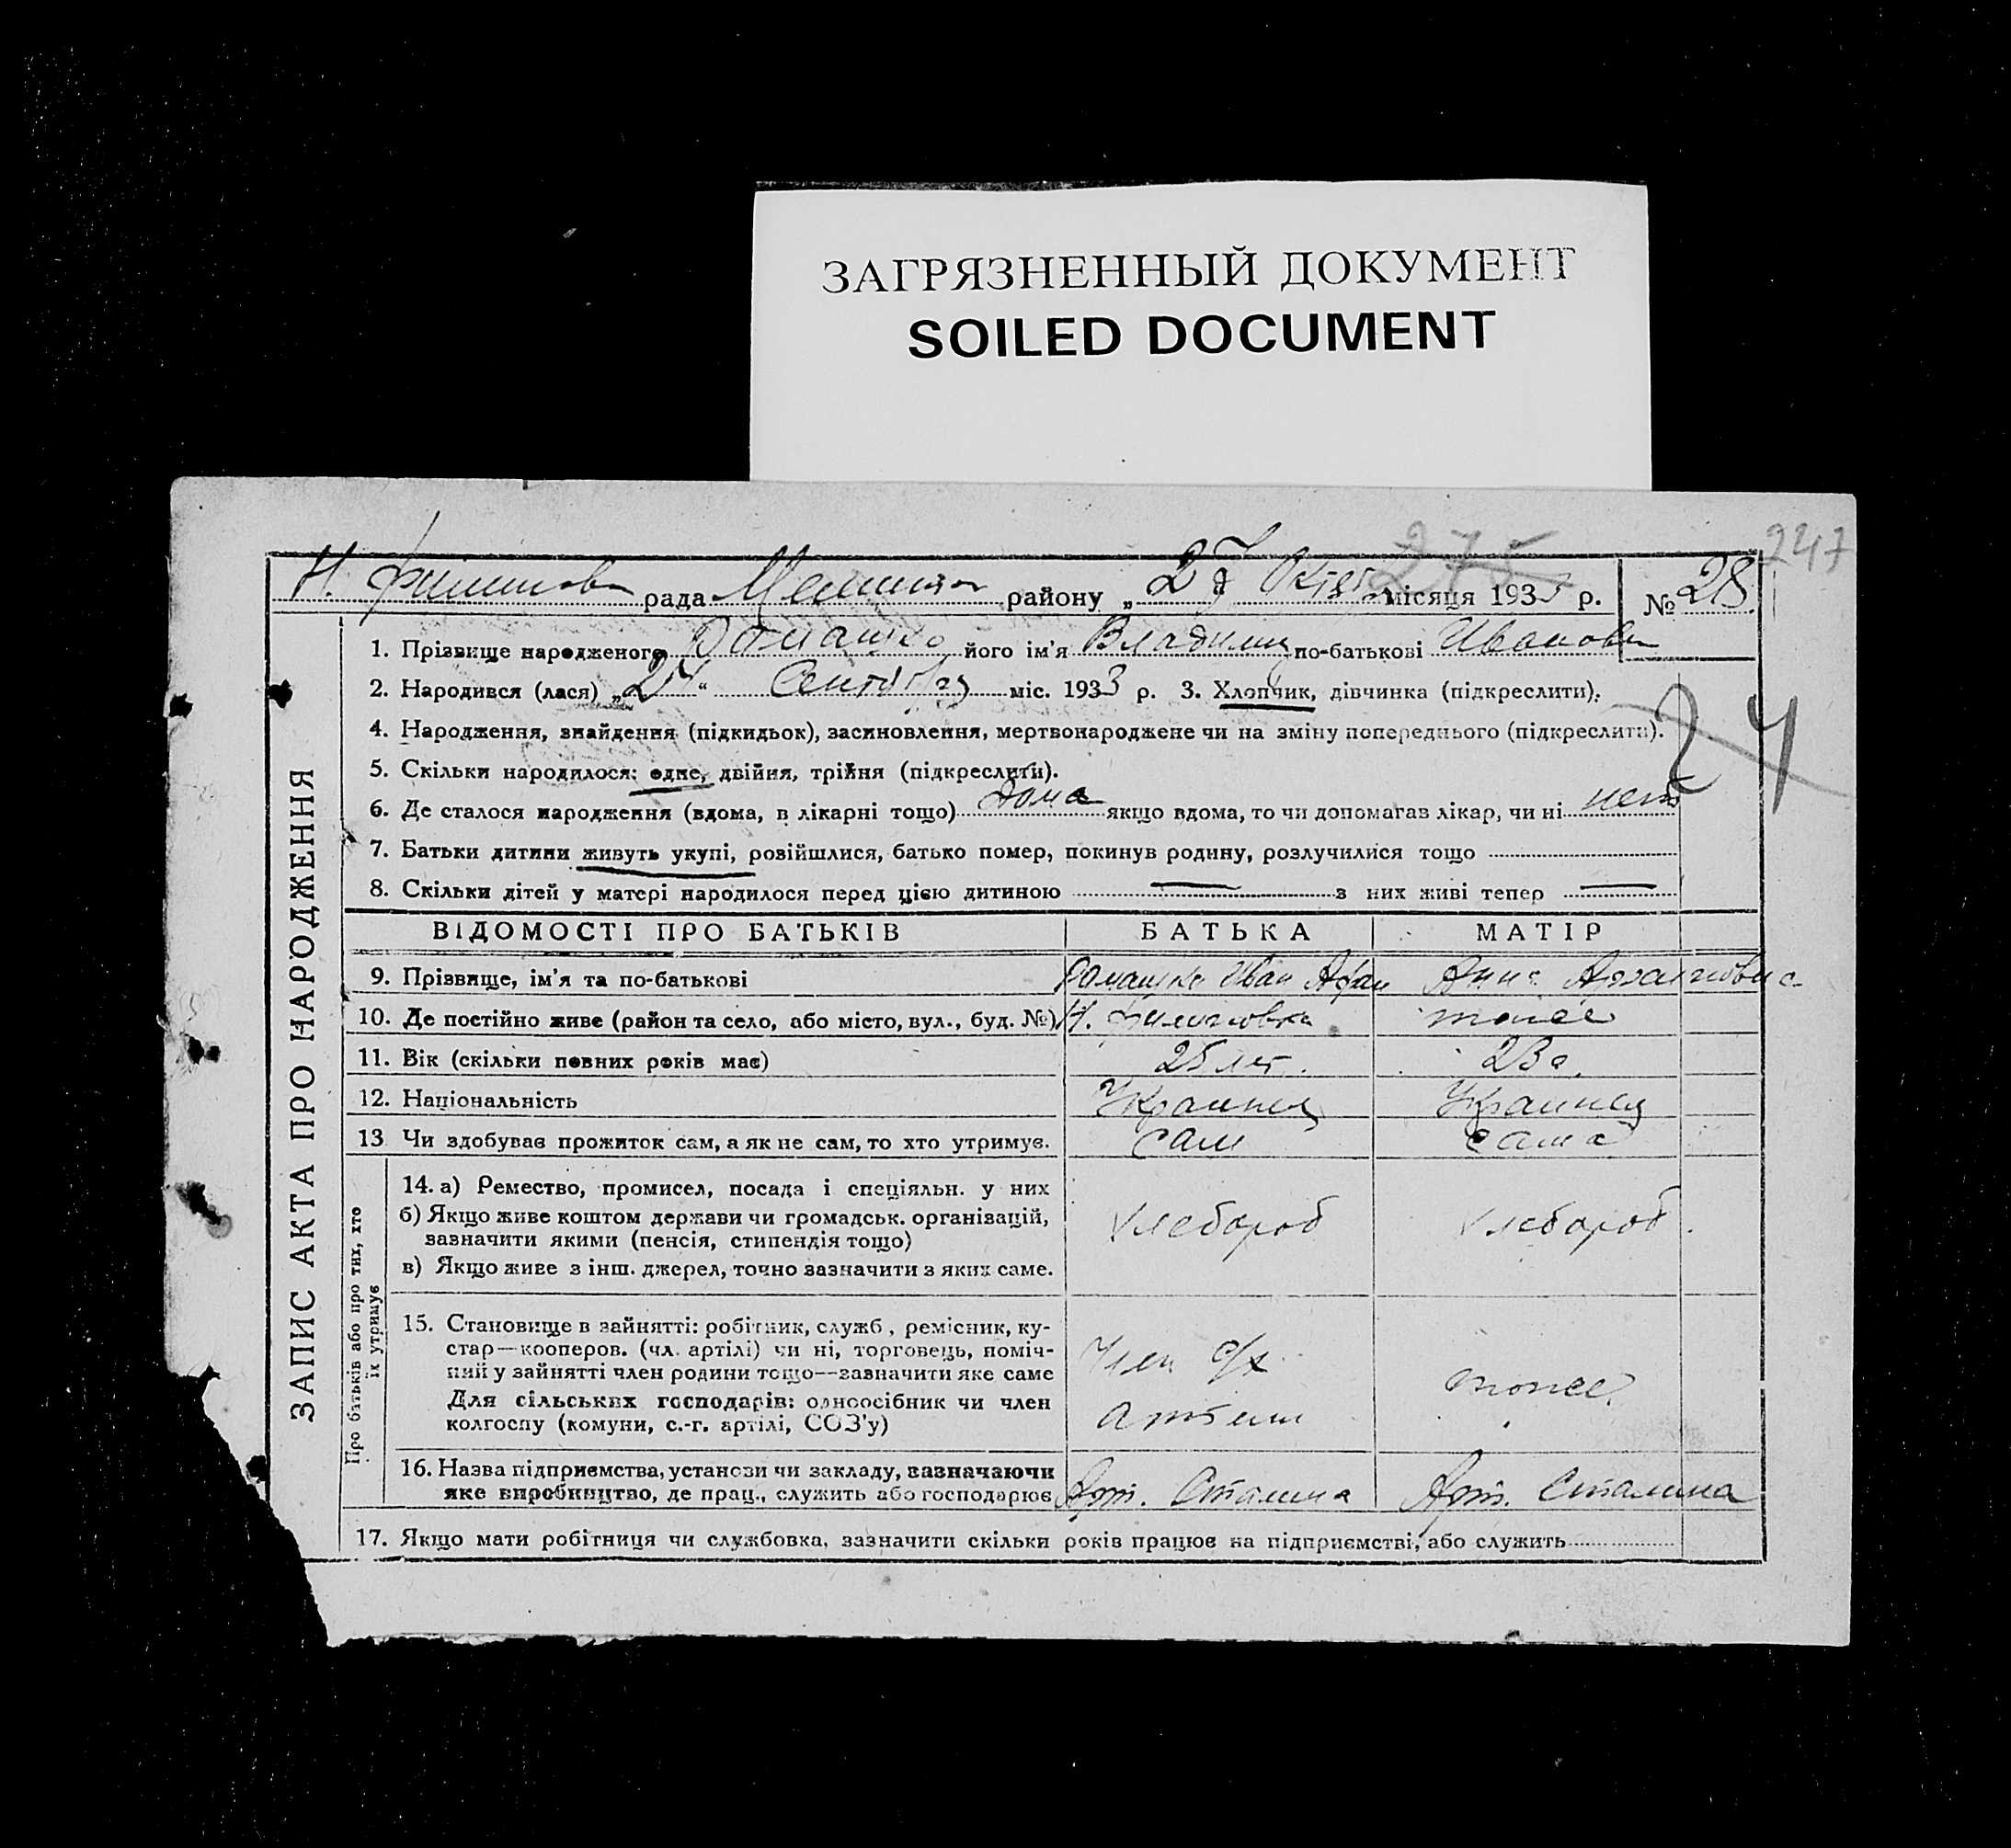 ЗАГРЯЗНЕННЫЙ ДОКУМЕНТ
SOILED DOCUMENT
275 247
рада району „27 місяця 1933 р. № 28
1. Прізвище народженого його ім'я Владимир по-батькові Иванови
2. Народився (лася) „24" Сентября міс. 1933 р. 3. Хлопчик, дівчинка (підкреслити).
24
4. Народження, знайдення (підкидьок), засиновлення, мертвонароджене чи на зміну попереднього (підкреслити).
5. Скільки народилося: одне, двійня, трійня (підкреслити).
6. Де сталося народження (вдома, в лікарні тощо) дома якщо вдома, то чи допомагав лікар, чи ні нет
7. Батьки дитини живуть укупі, розійшлися, батько помер, покинув родину, розлучилися тощо
8. Скільки дітей у матері народилося перед цією дитиною — з них живі тепер —
ЗАПИС АКТА ПРО НАРОДЖЕННЯ
ВІДОМОСТІ ПРО БАТЬКІВ БАТЬКА МАТІР
9. Прізвище, ім'я та по-батькові Иван Афан Анна
10. Де постійно живе (район та село, або місто, вул., буд. №) Н. тоже
11. Вік (скільки повних років має) 25 лет. 23 г.
12. Національність Украинец Украинец
13 Чи здобуває прожиток сам, а як не сам, то хто утримує. сам сама
Про батьків або про тих, хто їх утримує
14. а) Ремество, промисел, посада і спеціяльн. у них
б) Якщо живе коштом держави чи громадськ. організацій,
зазначити якими (пенсія, стипендія тощо) хлебороб хлебороб
в) Якщо живе з інш. джерел, точно зазначити з яких саме.
15. Становище в зайнятті: робітник, служб., ремісник, ку-
стар—кооперов. (чл. артілі) чи ні, торговець, поміч- Член с/х
ний у зайнятті член родини тощо—зазначити яке саме тоже
Для сільських господарів: одноосібник чи член артели
колгоспу (комуни, с.-г. артілі, СОЗ'у)
16. Назва підприємства, установи чи закладу, зазначаючи
яке виробництво, де прац., служить або господарює Арт. Сталина Арт. Сталина
17. Якщо мати робітниця чи службовка, зазначити скільки років працює на підприємстві, або служить